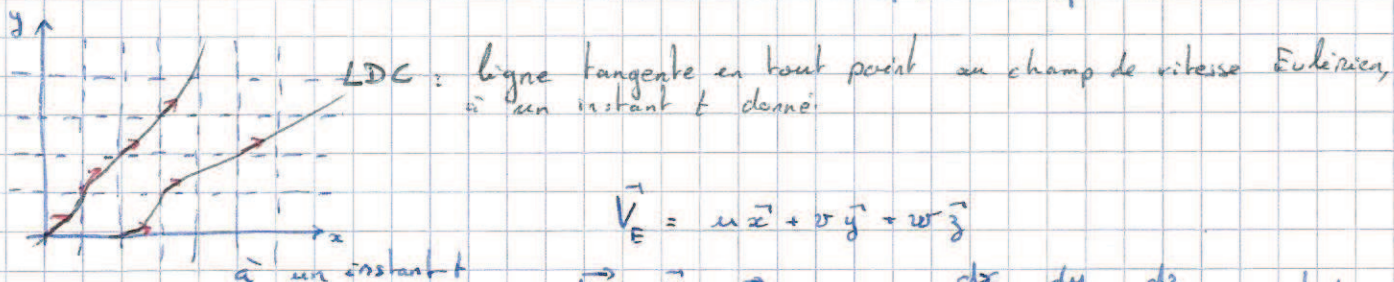 y
LDC : ligne tangente en tout point au champ de vitesse Eulérien,
à un instant t donné.
V⃗_E = u x⃗ + v y⃗ + w z⃗
x
à un instant t
dx dy dz